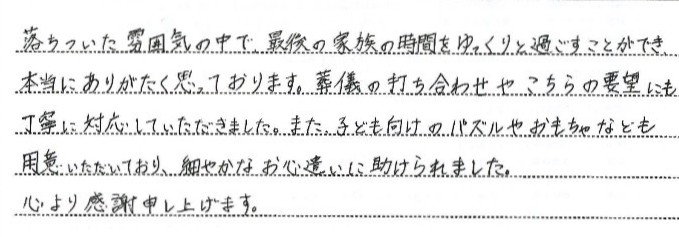 落ちついた雰囲気の中で最後の家族の時間をゆっくりと過ごすことができ、
本当にありがたく思っております。葬儀の打ち合わせやこちらの要望にも
丁寧に対応していただきました。また、子ども向けのパズルやおもちゃなども
用意いただいており、細やかなお心遣いに助けられました。
心より感謝申し上げます。